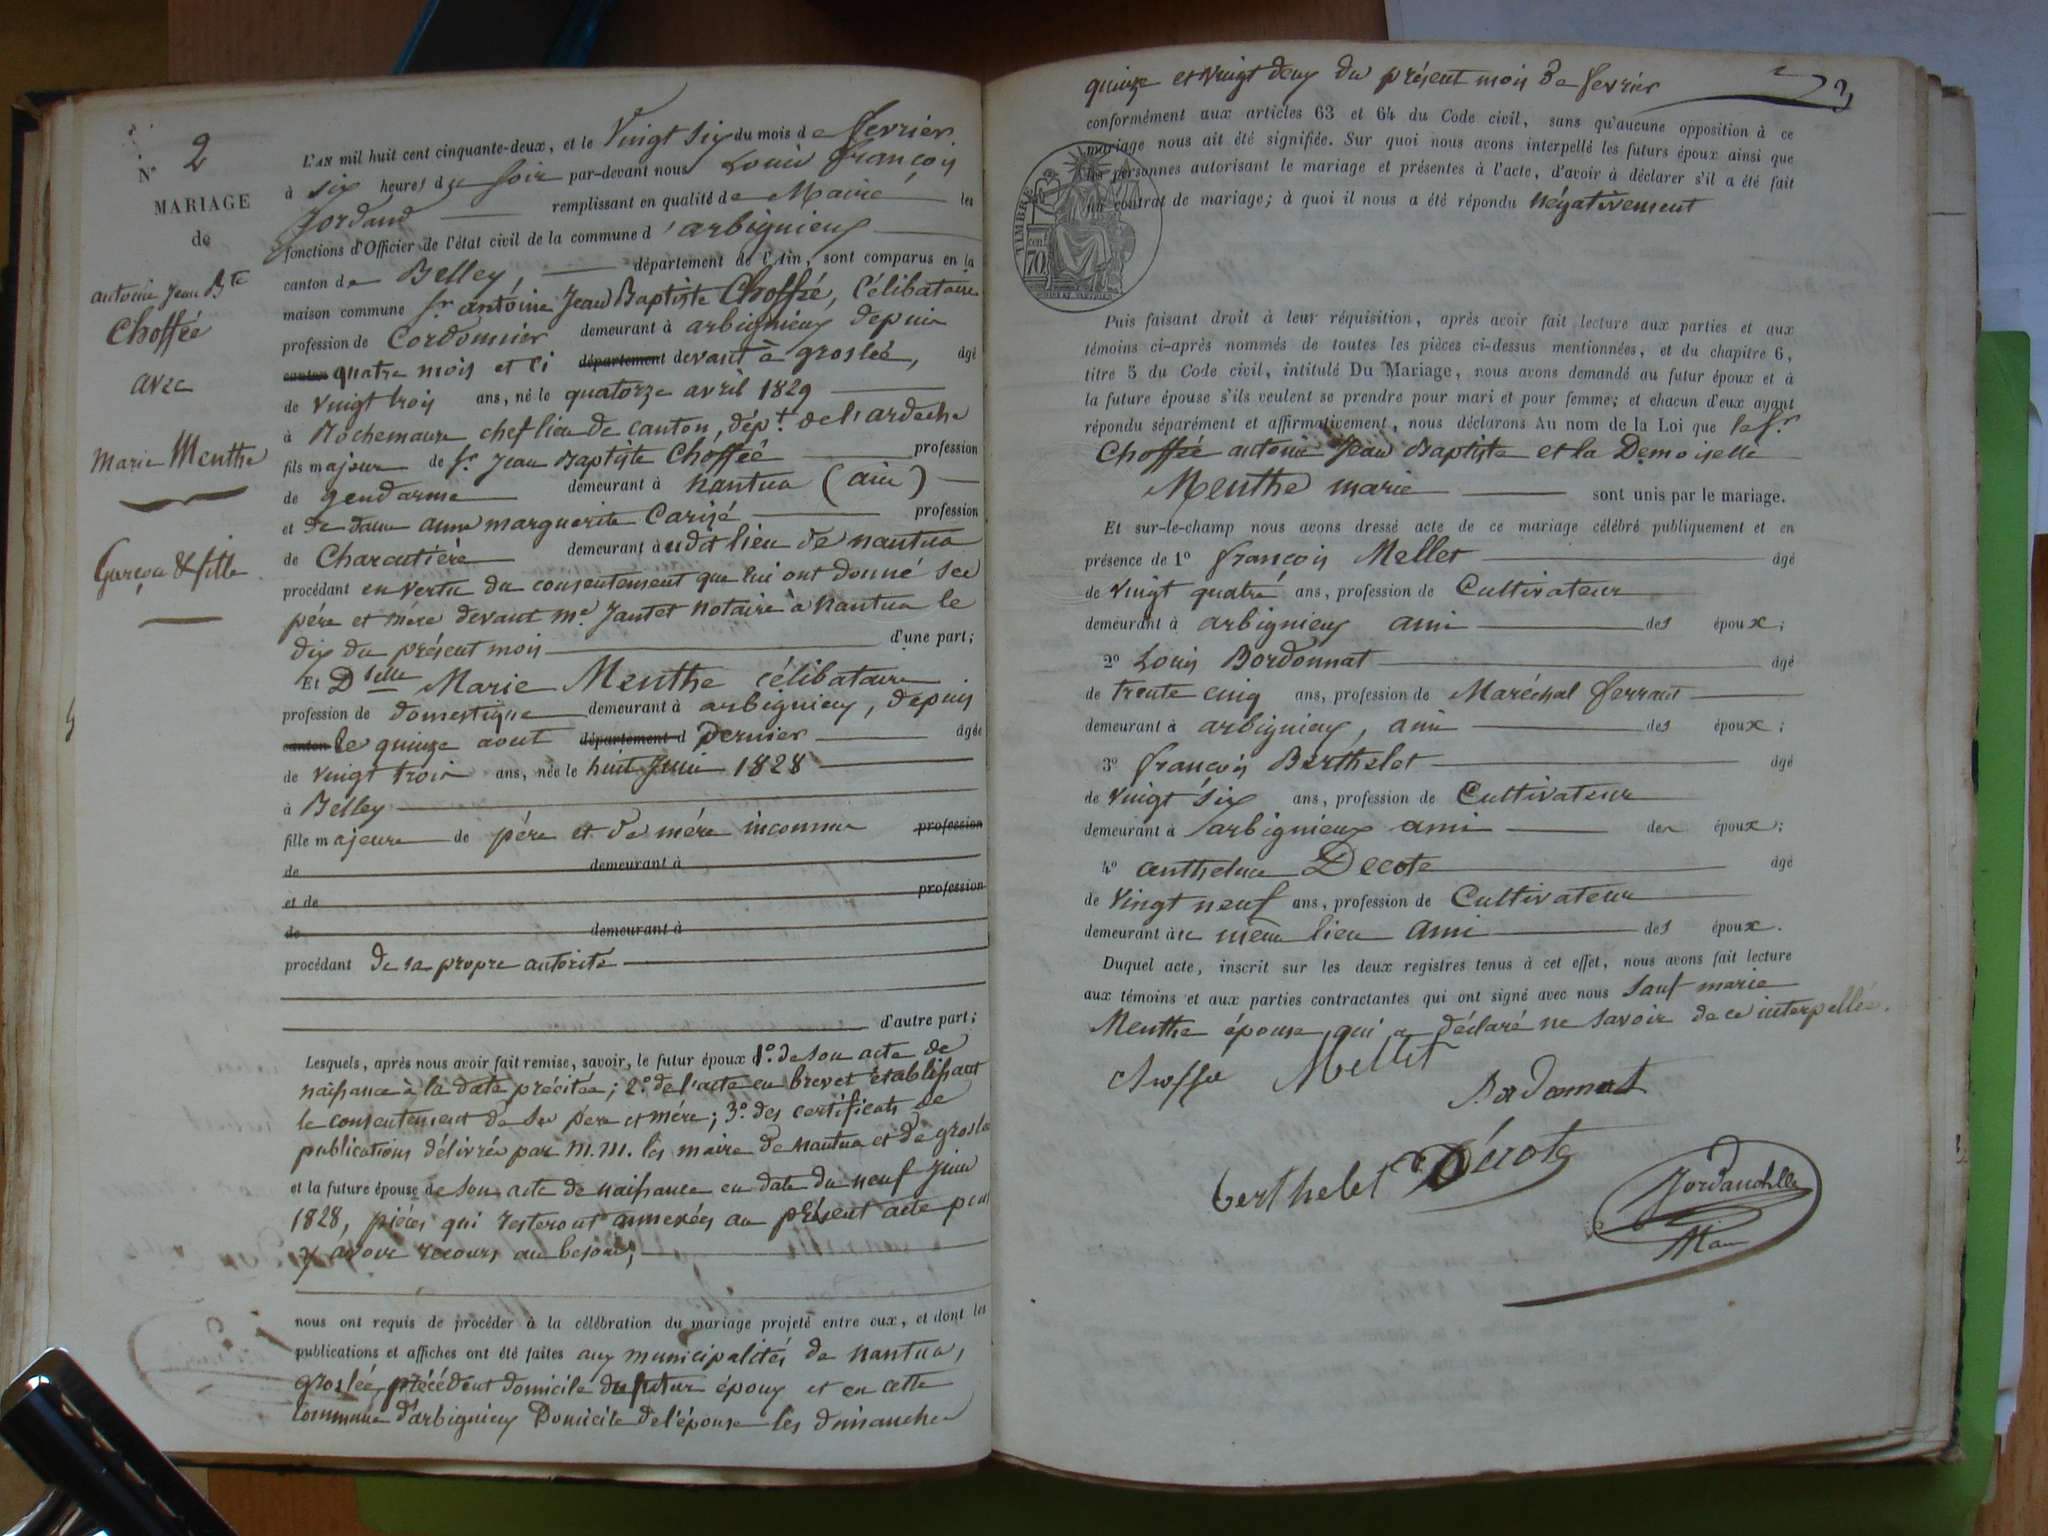 N° 2
MARIAGE
de
antoine Jean Bte
Choffée
avec
Marie Menthe
Garçon & fille
L'AN mil huit cent cinquante-deux, et le Vingt six du mois de fevrier
à six heures du soir par-devant nous Louis françois
Jordand remplissant en qualité de Maire les
fonctions d'Officier de l'état civil de la commune d'arbignieux
canton de Belley, département de l'Ain, sont comparus en la
maison commune Sr antoine Jean Baptiste Choffée, Célibataire
profession de Cordonnier demeurant à arbignieux depuis
canton quatre mois et ci département devant à groslée, âgé
de vingt trois ans, né le quatorze avril 1829
à Rochemaure chef lieu de canton, dépt. de l'ardeche
fils majeur de Sr Jean Baptiste Choffée profession
de gendarme demeurant à nantua (ain)
et de dame anne marguerite Carizé profession
de Charcutière demeurant à udit lieu de nantua
procédant en vertu du consentement que lui ont donné ses
père et mère devant me. Jantet notaire à nantua le
dix du présent mois d'une part;
Et Dlelle Marie Menthe célibataire
profession de domestique demeurant à arbignieux, depuis
canton le quinze aout département d dernier âgée
de vingt trois ans, née le huit Juin 1828
à Belley
fille majeure de père et de mére inconnus profession
de demeurant à
et de profession
de demeurant à
procédant de sa propre autorité
d'autre part;
Lesquels, après nous avoir fait remise, savoir, le futur époux 1°. de son acte de
naissance à la date précitée; 2°. de l'acte en brevet établissant
le consentement de ses pere et mére; 3°. des certificats de
publications délivrés par M.M. les maire de nantua et de grosle
et la future épouse de son acte de naissance en date du neuf Juin
1828, piéces qui resteront annexées au présent acte pour
y avoir recours au besoin,
nous ont requis de procéder à la célébration du mariage projeté entre eux, et dont les
publications et affiches ont été faites aux municipalités de nantua,
groslée, précédent domicile du futur époux et en cette
Commune d'arbignieux Domicile de l'épouse les dimanches
quinze et vingt deux du présent mois de fevrier
conformément aux articles 63 et 64 du Code civil, sans qu'aucune opposition à ce
mariage nous ait été signifiée. Sur quoi nous avons interpellé les futurs époux ainsi que
les personnes autorisant le mariage et présentes à l'acte, d'avoir à déclarer s'il a été fait
un contrat de mariage; à quoi il nous a été répondu négativement
TIMBRE
70
Puis faisant droit à leur réquisition, après avoir fait lecture aux parties et aux
témoins ci-après nommés de toutes les pièces ci-dessus mentionnées, et du chapitre 6,
titre 5 du Code civil, intitulé Du Mariage, nous avons demandé au futur époux et à
la future épouse s'ils veulent se prendre pour mari et pour femme; et chacun d'eux ayant
répondu séparément et affirmativement, nous déclarons Au nom de la Loi que le Sr
Choffée antoine Jean Baptiste et la Demoiselle
Menthe marie sont unis par le mariage.
Et sur-le-champ nous avons dressé acte de ce mariage célébré publiquement et en
présence de 1° françois Mellet âgé
de vingt quatre ans, profession de Cultivateur
demeurant à arbignieux ami des époux;
2° Louis Bordonnat âgé
de trente cinq ans, profession de Maréchal ferrant
demeurant à arbignieux, ami des époux;
3° françois Berthelet âgé
de vingt six ans, profession de Cultivateur
demeurant à arbignieux ami des époux;
4° anthelme Decote âgé
de vingt neuf ans, profession de Cultivateur
demeurant à u même lieu ami des époux.
Duquel acte, inscrit sur les deux registres tenus à cet effet, nous avons fait lecture
aux témoins et aux parties contractantes qui ont signé avec nous sauf marie
Menthe épouse qui a déclaré ne savoir de ce interpellée.
Choffee Mellet
Bordonnat
berthelet Décote